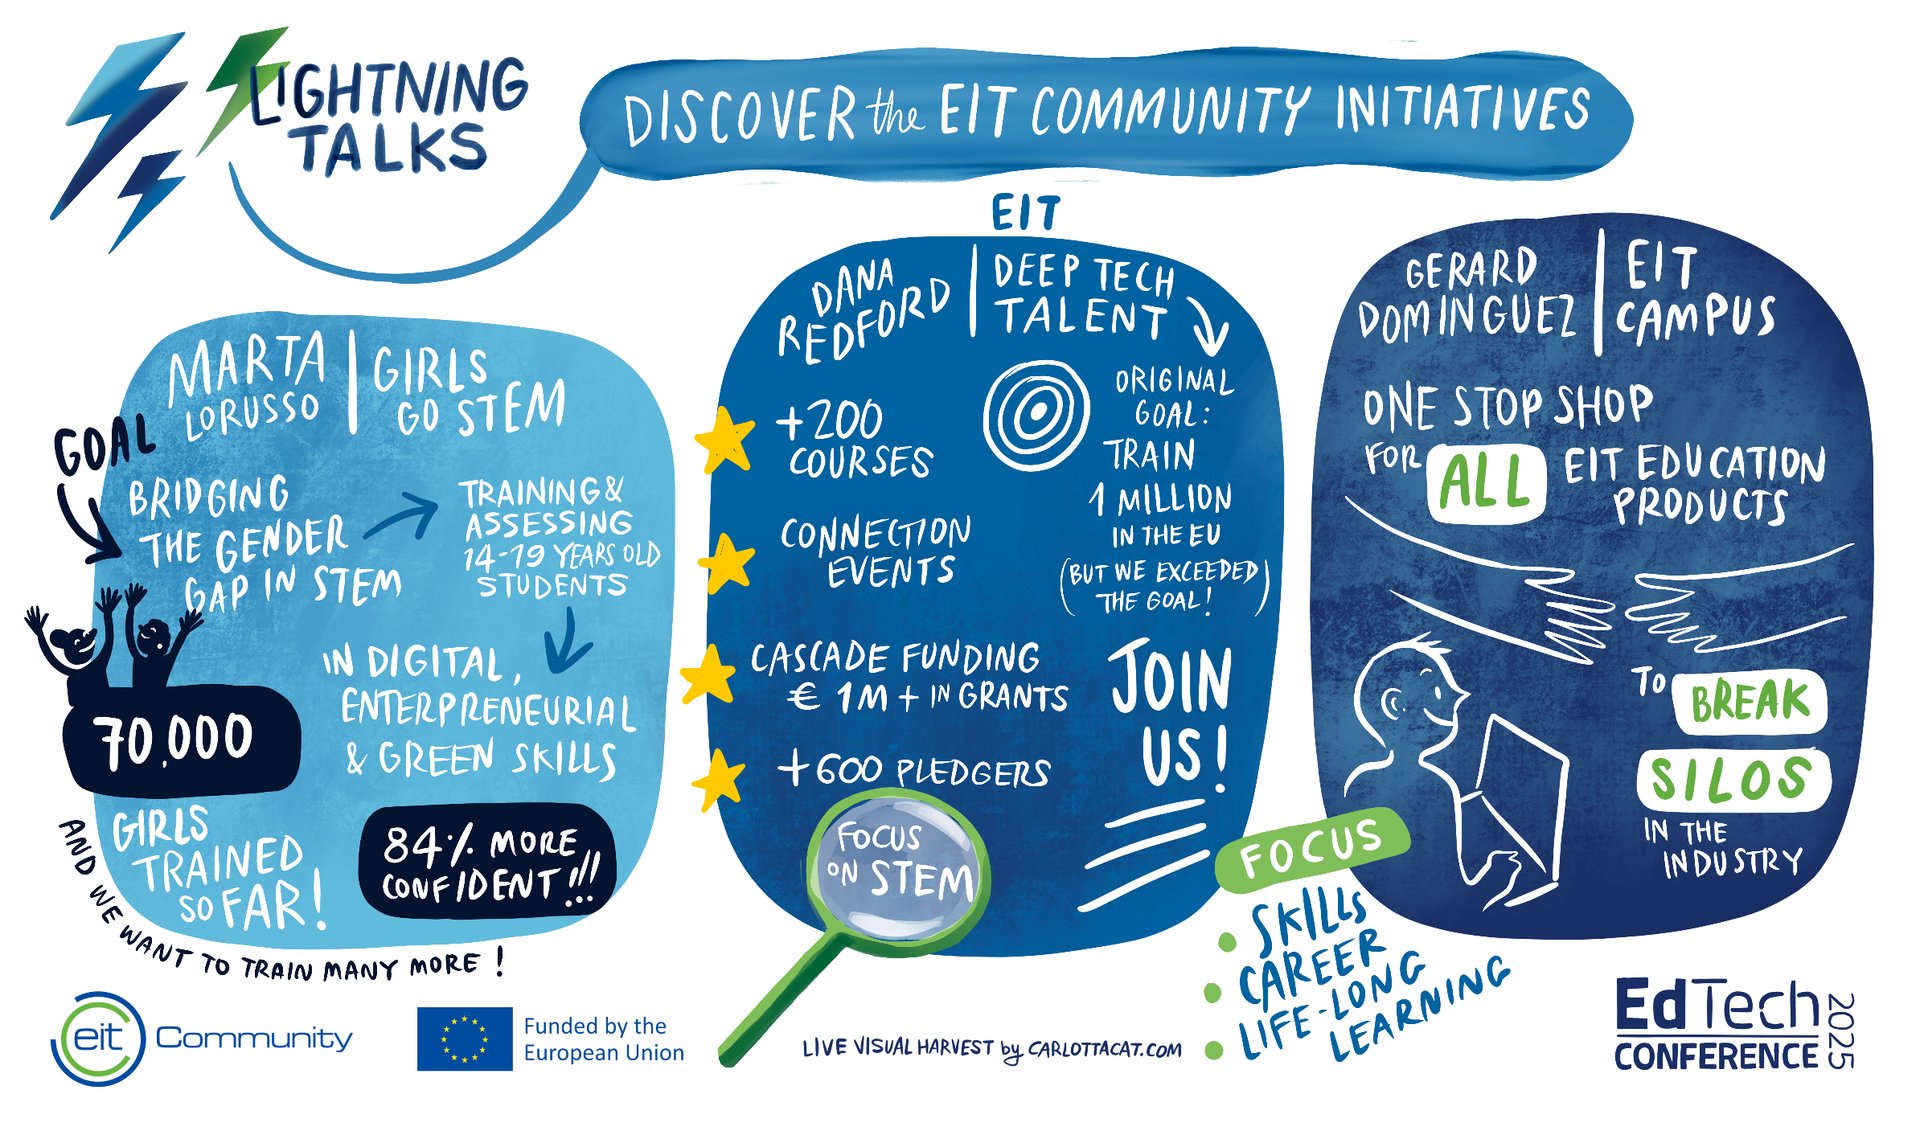 LIGHTNING
TALKS
DISCOVER the EIT COMMUNITY INITIATIVES
MARTA
LORUSSO
GIRLS
GO STEM
GOAL
BRIDGING
THE GENDER
GAP IN STEM
TRAINING &
ASSESSING
14-19 YEARS OLD
STUDENTS
IN DIGITAL,
ENTERPRENEURIAL
& GREEN SKILLS
70.000
GIRLS
TRAINED
SO FAR!
AND WE WANT TO TRAIN MANY MORE !
84% MORE
CONFIDENT!!!
EIT
DANA
REDFORD
DEEP TECH
TALENT
+200
COURSES
CONNECTION
EVENTS
CASCADE FUNDING
€ 1M + IN GRANTS
+600 PLEDGERS
ORIGINAL
GOAL:
TRAIN
1 MILLION
IN THE EU
(BUT WE EXCEEDED
THE GOAL!)
JOIN
US!
FOCUS
ON STEM
GERARD
DOMINGUEZ
EIT
CAMPUS
ONE STOP SHOP
FOR ALL EIT EDUCATION
PRODUCTS
TO BREAK
SILOS
IN THE
INDUSTRY
FOCUS
• SKILLS
• CAREER
• LIFE-LONG
LEARNING
eit Community
Funded by the
European Union
LIVE VISUAL HARVEST by CARLOTTACAT.COM
EdTech
CONFERENCE
2025